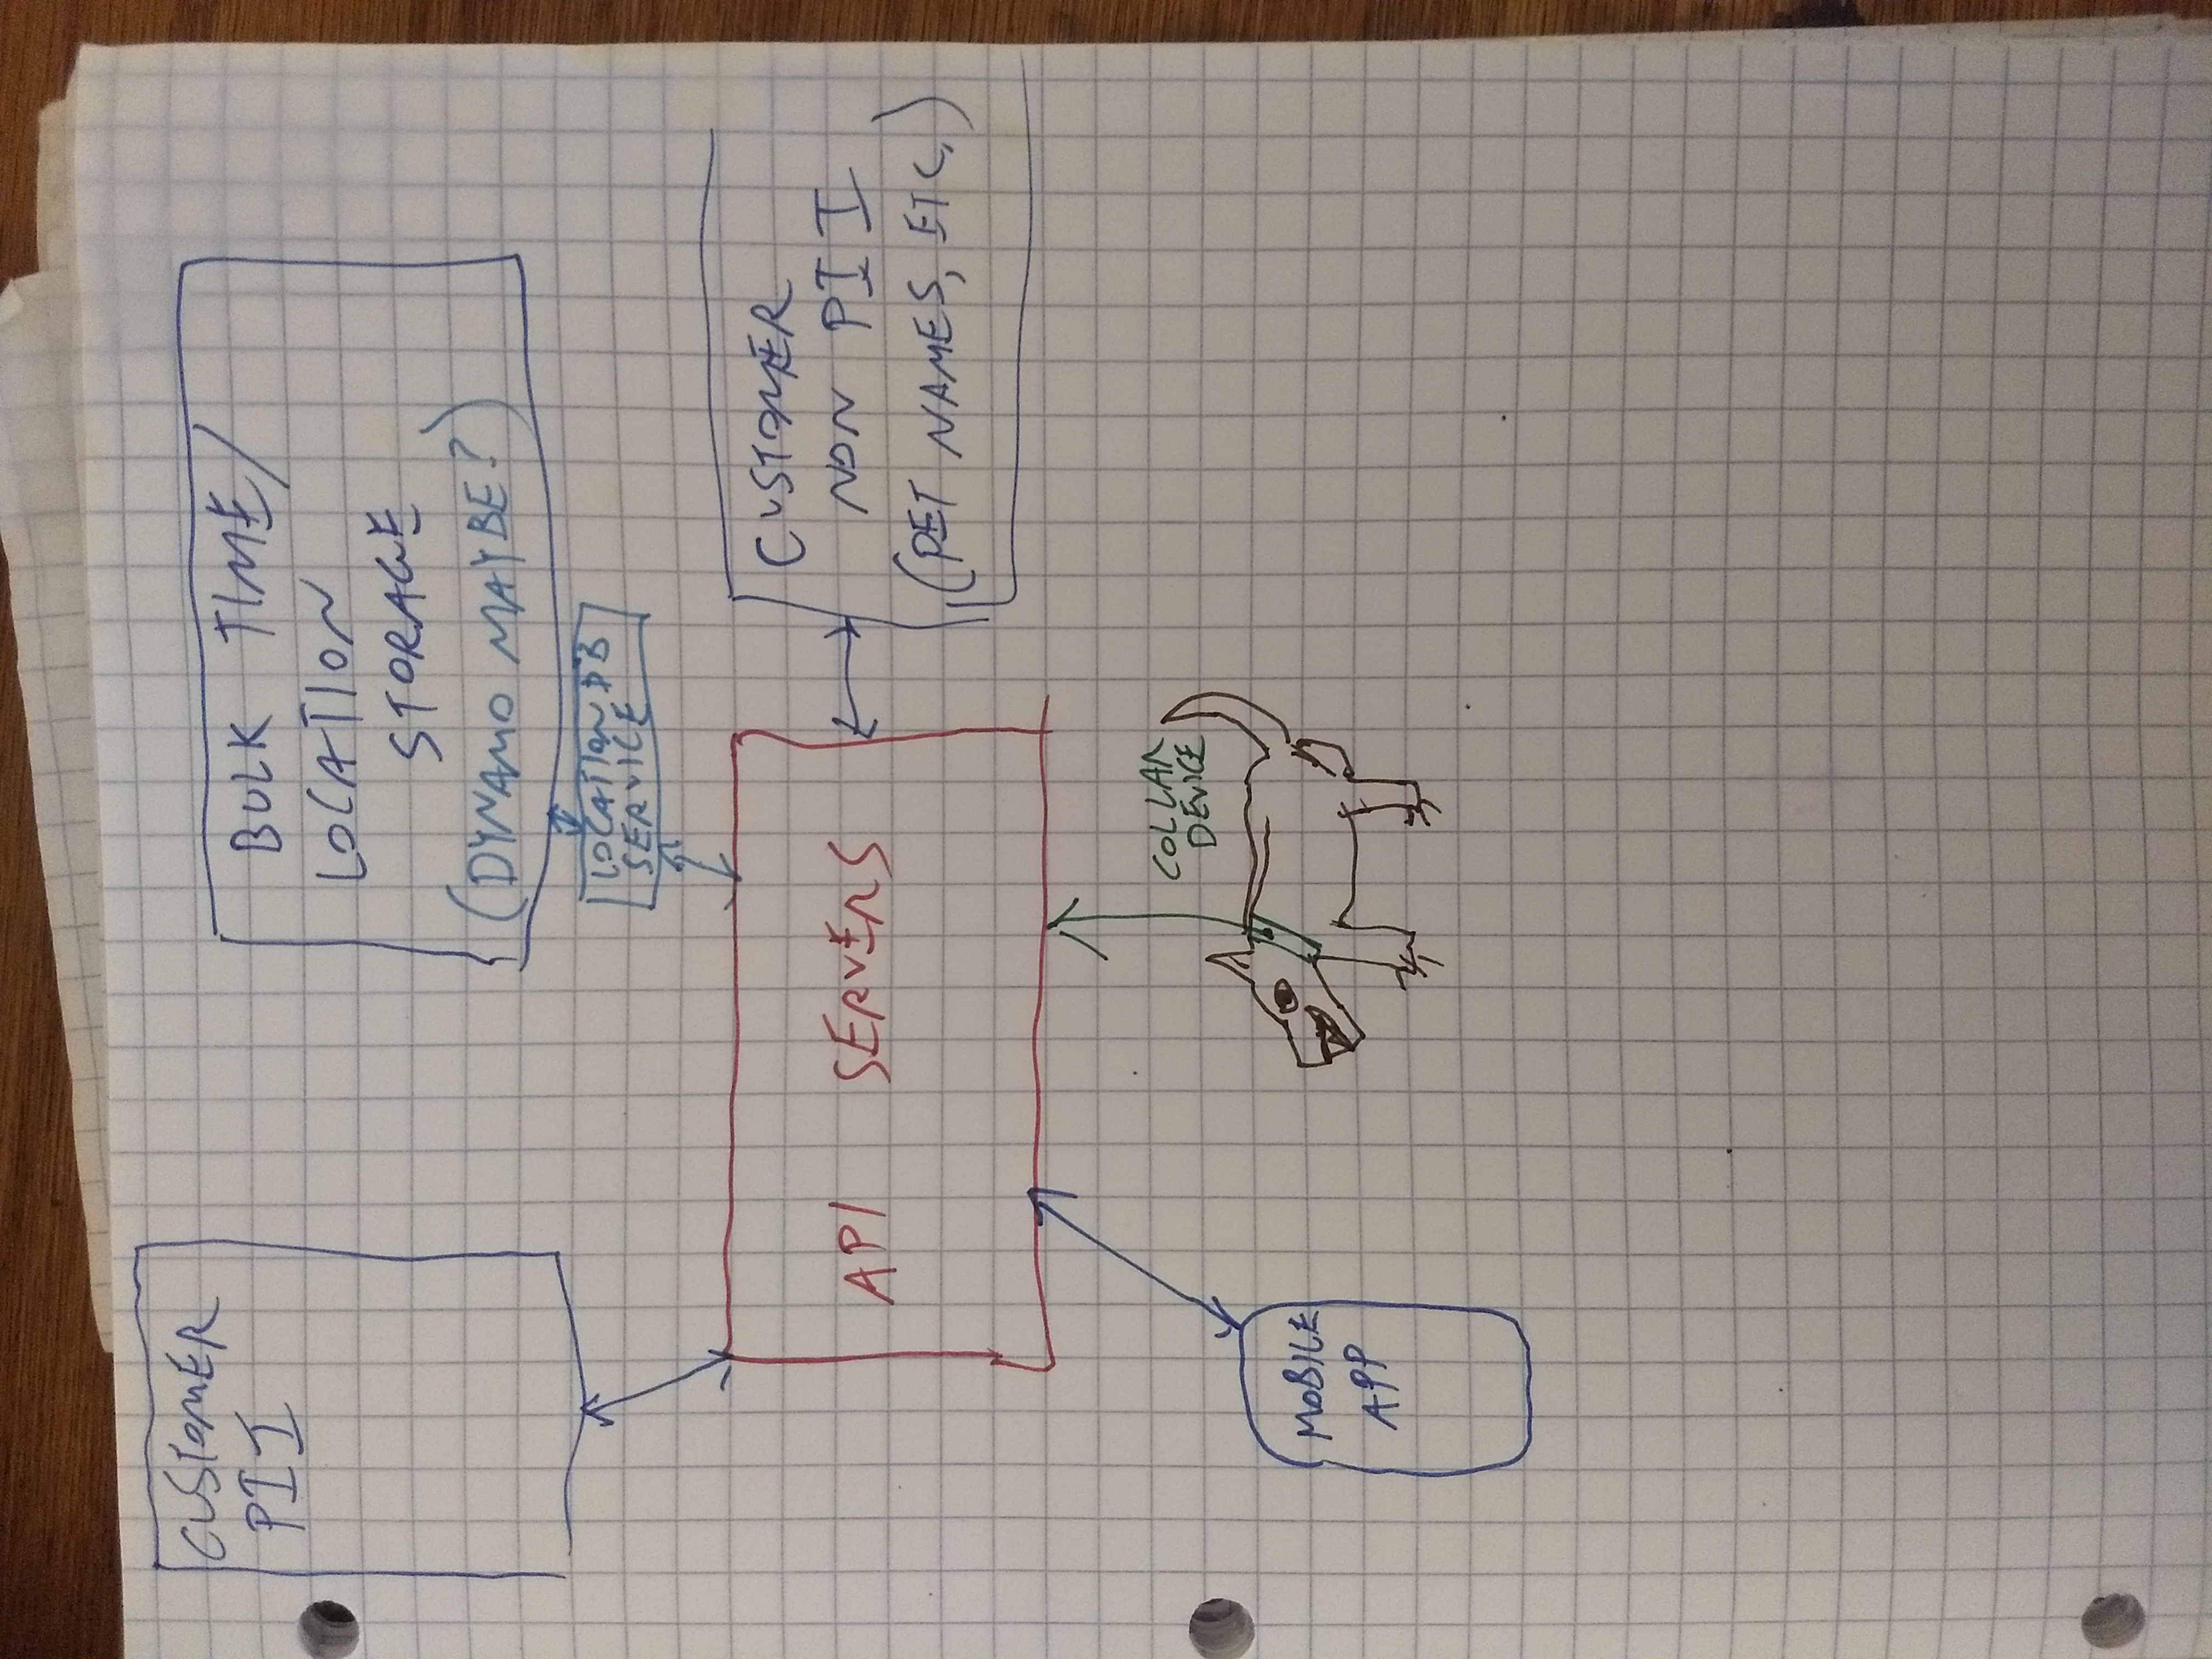 CUSTOMER
PII
BULK TIME/
LOCATION
STORAGE
(DYNAMO MAYBE?)
LOCATION DB
SERVICE
CUSTOMER
NON PII
(PET NAMES, ETC.)
API SERVERS
COLLAR
DEVICE
MOBILE
APP